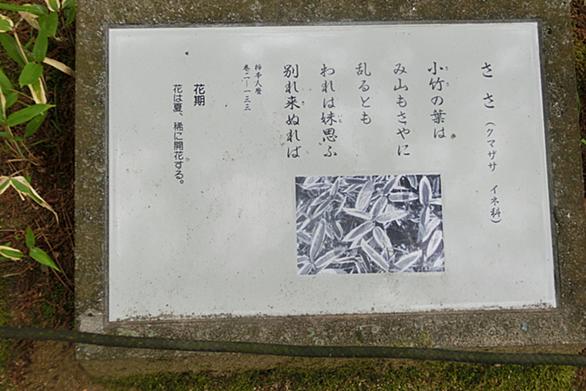 ささ（クマザサ　イネ科）
小竹の葉は
み山もさやに
乱るとも
われは妹思ふ
別れ来ぬれば
柿本人麿
巻二－一三三
花期
花は夏、稀に開花する。